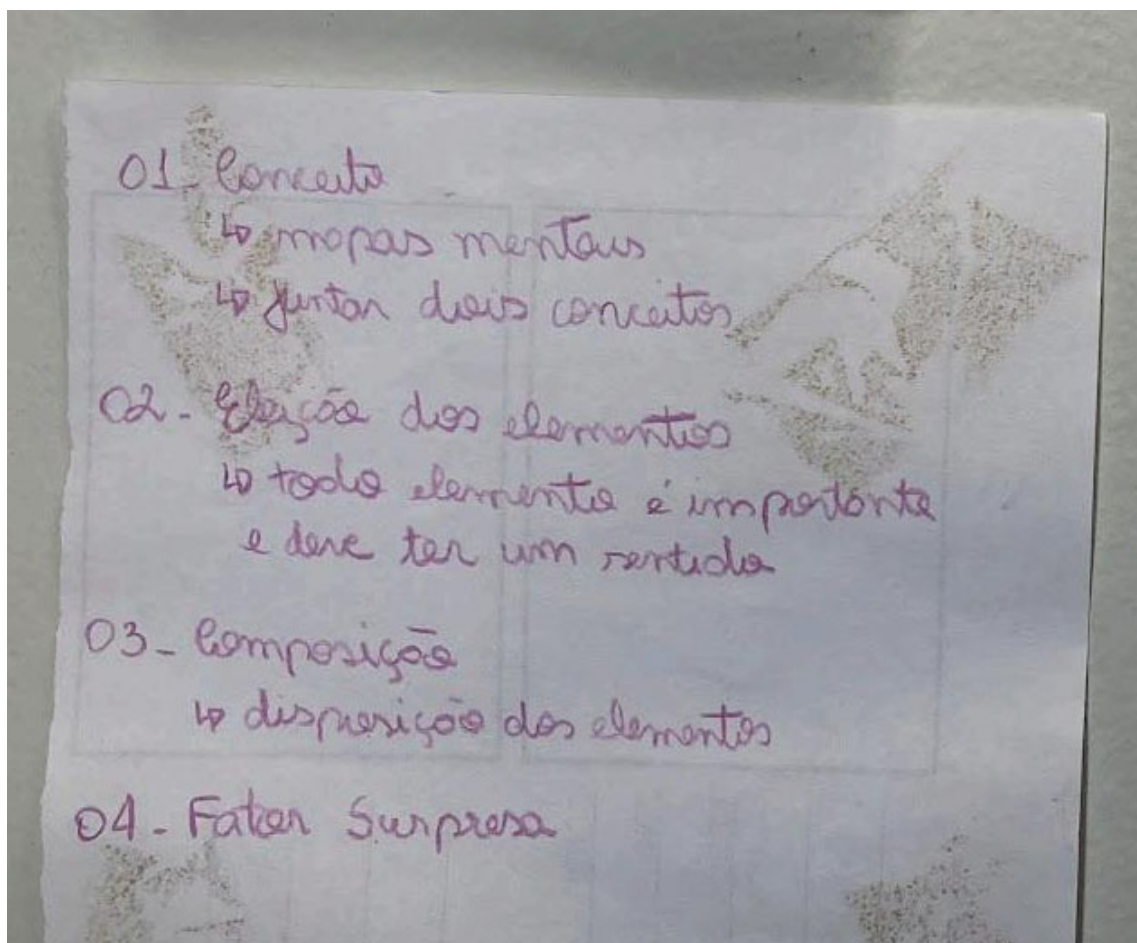 01_ Conceito
↳ mapas mentais
↳ Juntar dois conceitos
02 - Eleição dos elementos
↳ todo elemento é importante
e deve ter um sentido
03 - Composição
↳ disposição dos elementos
04 - Fator Surpresa